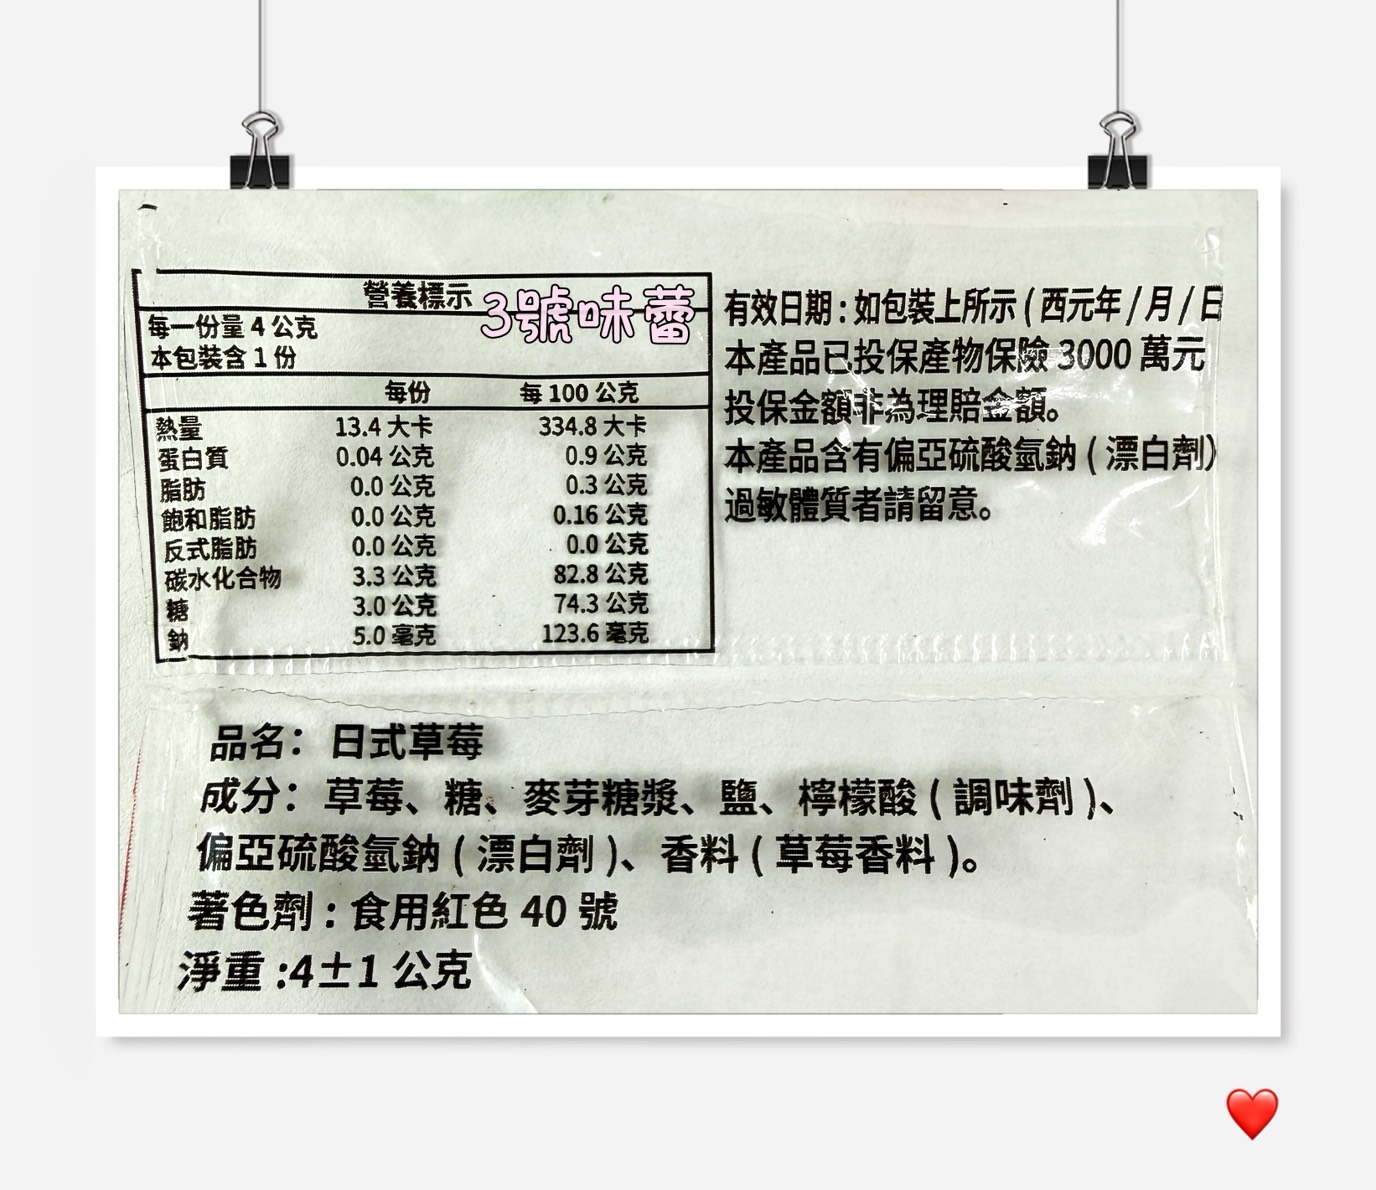 營養標示
3號味蕾
每一份量 4 公克
本包裝含 1 份
每份 每 100 公克
熱量 13.4 大卡 334.8 大卡
蛋白質 0.04 公克 0.9 公克
脂肪 0.0 公克 0.3 公克
飽和脂肪 0.0 公克 0.16 公克
反式脂肪 0.0 公克 0.0 公克
碳水化合物 3.3 公克 82.8 公克
糖 3.0 公克 74.3 公克
鈉 5.0 毫克 123.6 毫克
有效日期 : 如包裝上所示 ( 西元年 / 月 / 日
本產品已投保產物保險 3000 萬元
投保金額非為理賠金額。
本產品含有偏亞硫酸氫鈉 ( 漂白劑)
過敏體質者請留意。
品名： 日式草莓
成分： 草莓、糖、麥芽糖漿、鹽、檸檬酸 ( 調味劑 )、
偏亞硫酸氫鈉 ( 漂白劑 )、香料 ( 草莓香料 )。
著色劑 : 食用紅色 40 號
淨重 :4±1 公克